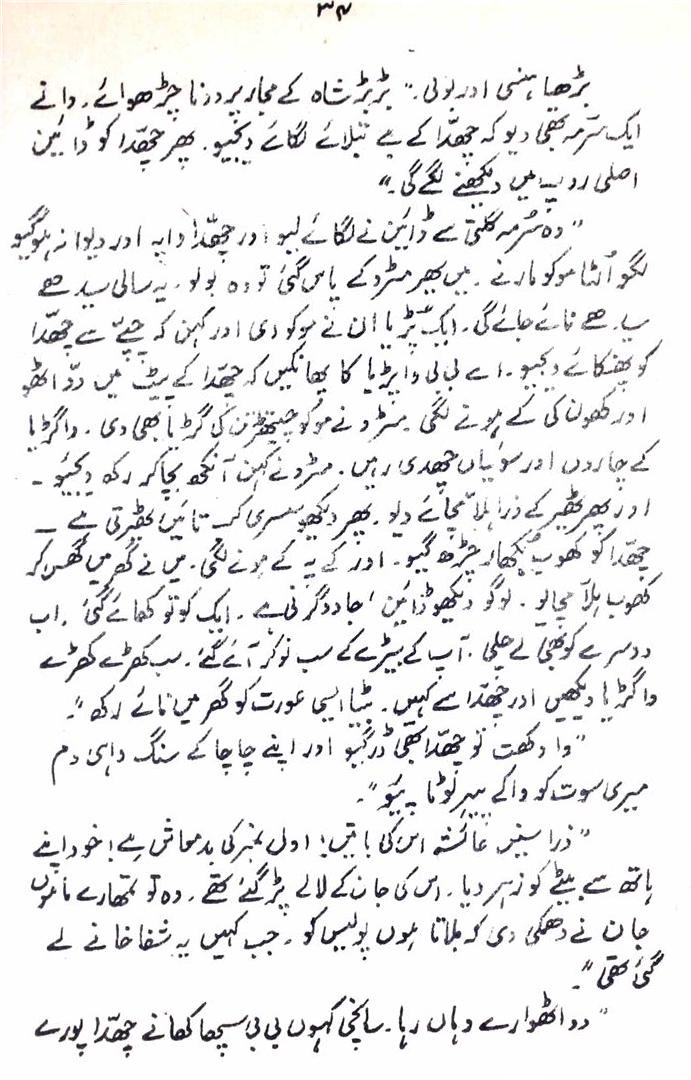 ۳۴
بڑھیا ہنسی اور بولی۔ "بڑبڑ شاہ کے مجار پر دزنا چڑھوائے۔ وانے
ایک سرمہ بھی دیو کہ چھدّا کے بے بتلائے لگائے دیجیو۔ پھر چھدّا کو ڈائین
اصلی روپ میں دیکھنے لگے گی۔"
"وہ سُرمہ گلتی سے ڈائین نے لگائے لیو اور چھدّا وا پہ اور دیوانہ ہوگیو
لگو اُلٹا موکو مارنے۔ میں پھر مٹرو کے پاس گئی تو وہ بولو۔ یہ سالی سیدھے
سیدھے نائے جائے گی۔ ایک پُڑیا ان نے موکو دی اور کہن کہ چپّے سے چھدّا
کو پھنکائے دیجیو۔ اے بی بی وا پڑیا کا پھانکیں کہ چھدّا کے پیٹ میں درد اٹھو
اور کھون کی کے ہونے لگی۔ مٹرو نے موکو چیتھڑن کی گڑیا بھی دی۔ وا گڑیا
کے چاروں اور سوئیاں چھدی رہیں۔ مٹرو نے کہن آنکھ بچا کر رکھ دیجیئو۔
اور پھر ٹھیر کے ذرا ہلّا مچائے دیو۔ پھر دیکھو سسری کب تائیں ٹھیرتی ہے۔
چھدّا کو کھوب بُکھار چڑھ گیو۔ اور کے پہ کے ہونے لگی۔ میں نے گھر میں گھس کر
کھوب ہلّا مچالو۔ لوگو دیکھو ڈائین، جادو کرنی ہے۔ ایک کو تو کھائے گئی۔ اب
دوسرے کو بھی لے چلی۔ آپ کے بیڑے کے سب نوکر آئے گئے۔ سب کھڑے کھڑے
وا گڑیا دیکھیں اور چھدّا سے کہیں۔ بٹیا ایسی عورت کو گھر میں نائے رکھ"۔
"وا دکھت تو چھدّا بھی ڈر گیو اور اپنے چاچا کے سنگ واہی دم
میری سوت کو واکے پیہر لوٹا یہیئو"۔
"ذرا سنیے عائشہ اس کی باتیں! اول نمبر کی بدمعاش ہے! خود اپنے
ہاتھ سے بیٹے کو زہر دیا۔ اس کی جان کے لالے پڑ گئے تھے۔ وہ تو تمھارے ماموں
جان نے دھمکی دی کہ بلاتا ہوں پولیس کو۔ جب کہیں یہ شفاخانے لے
گئی تھی"۔
"دو اٹھوارے وہاں رہا۔ سانچی کہوں بی بی سچھا کھانے چھدّا پورے